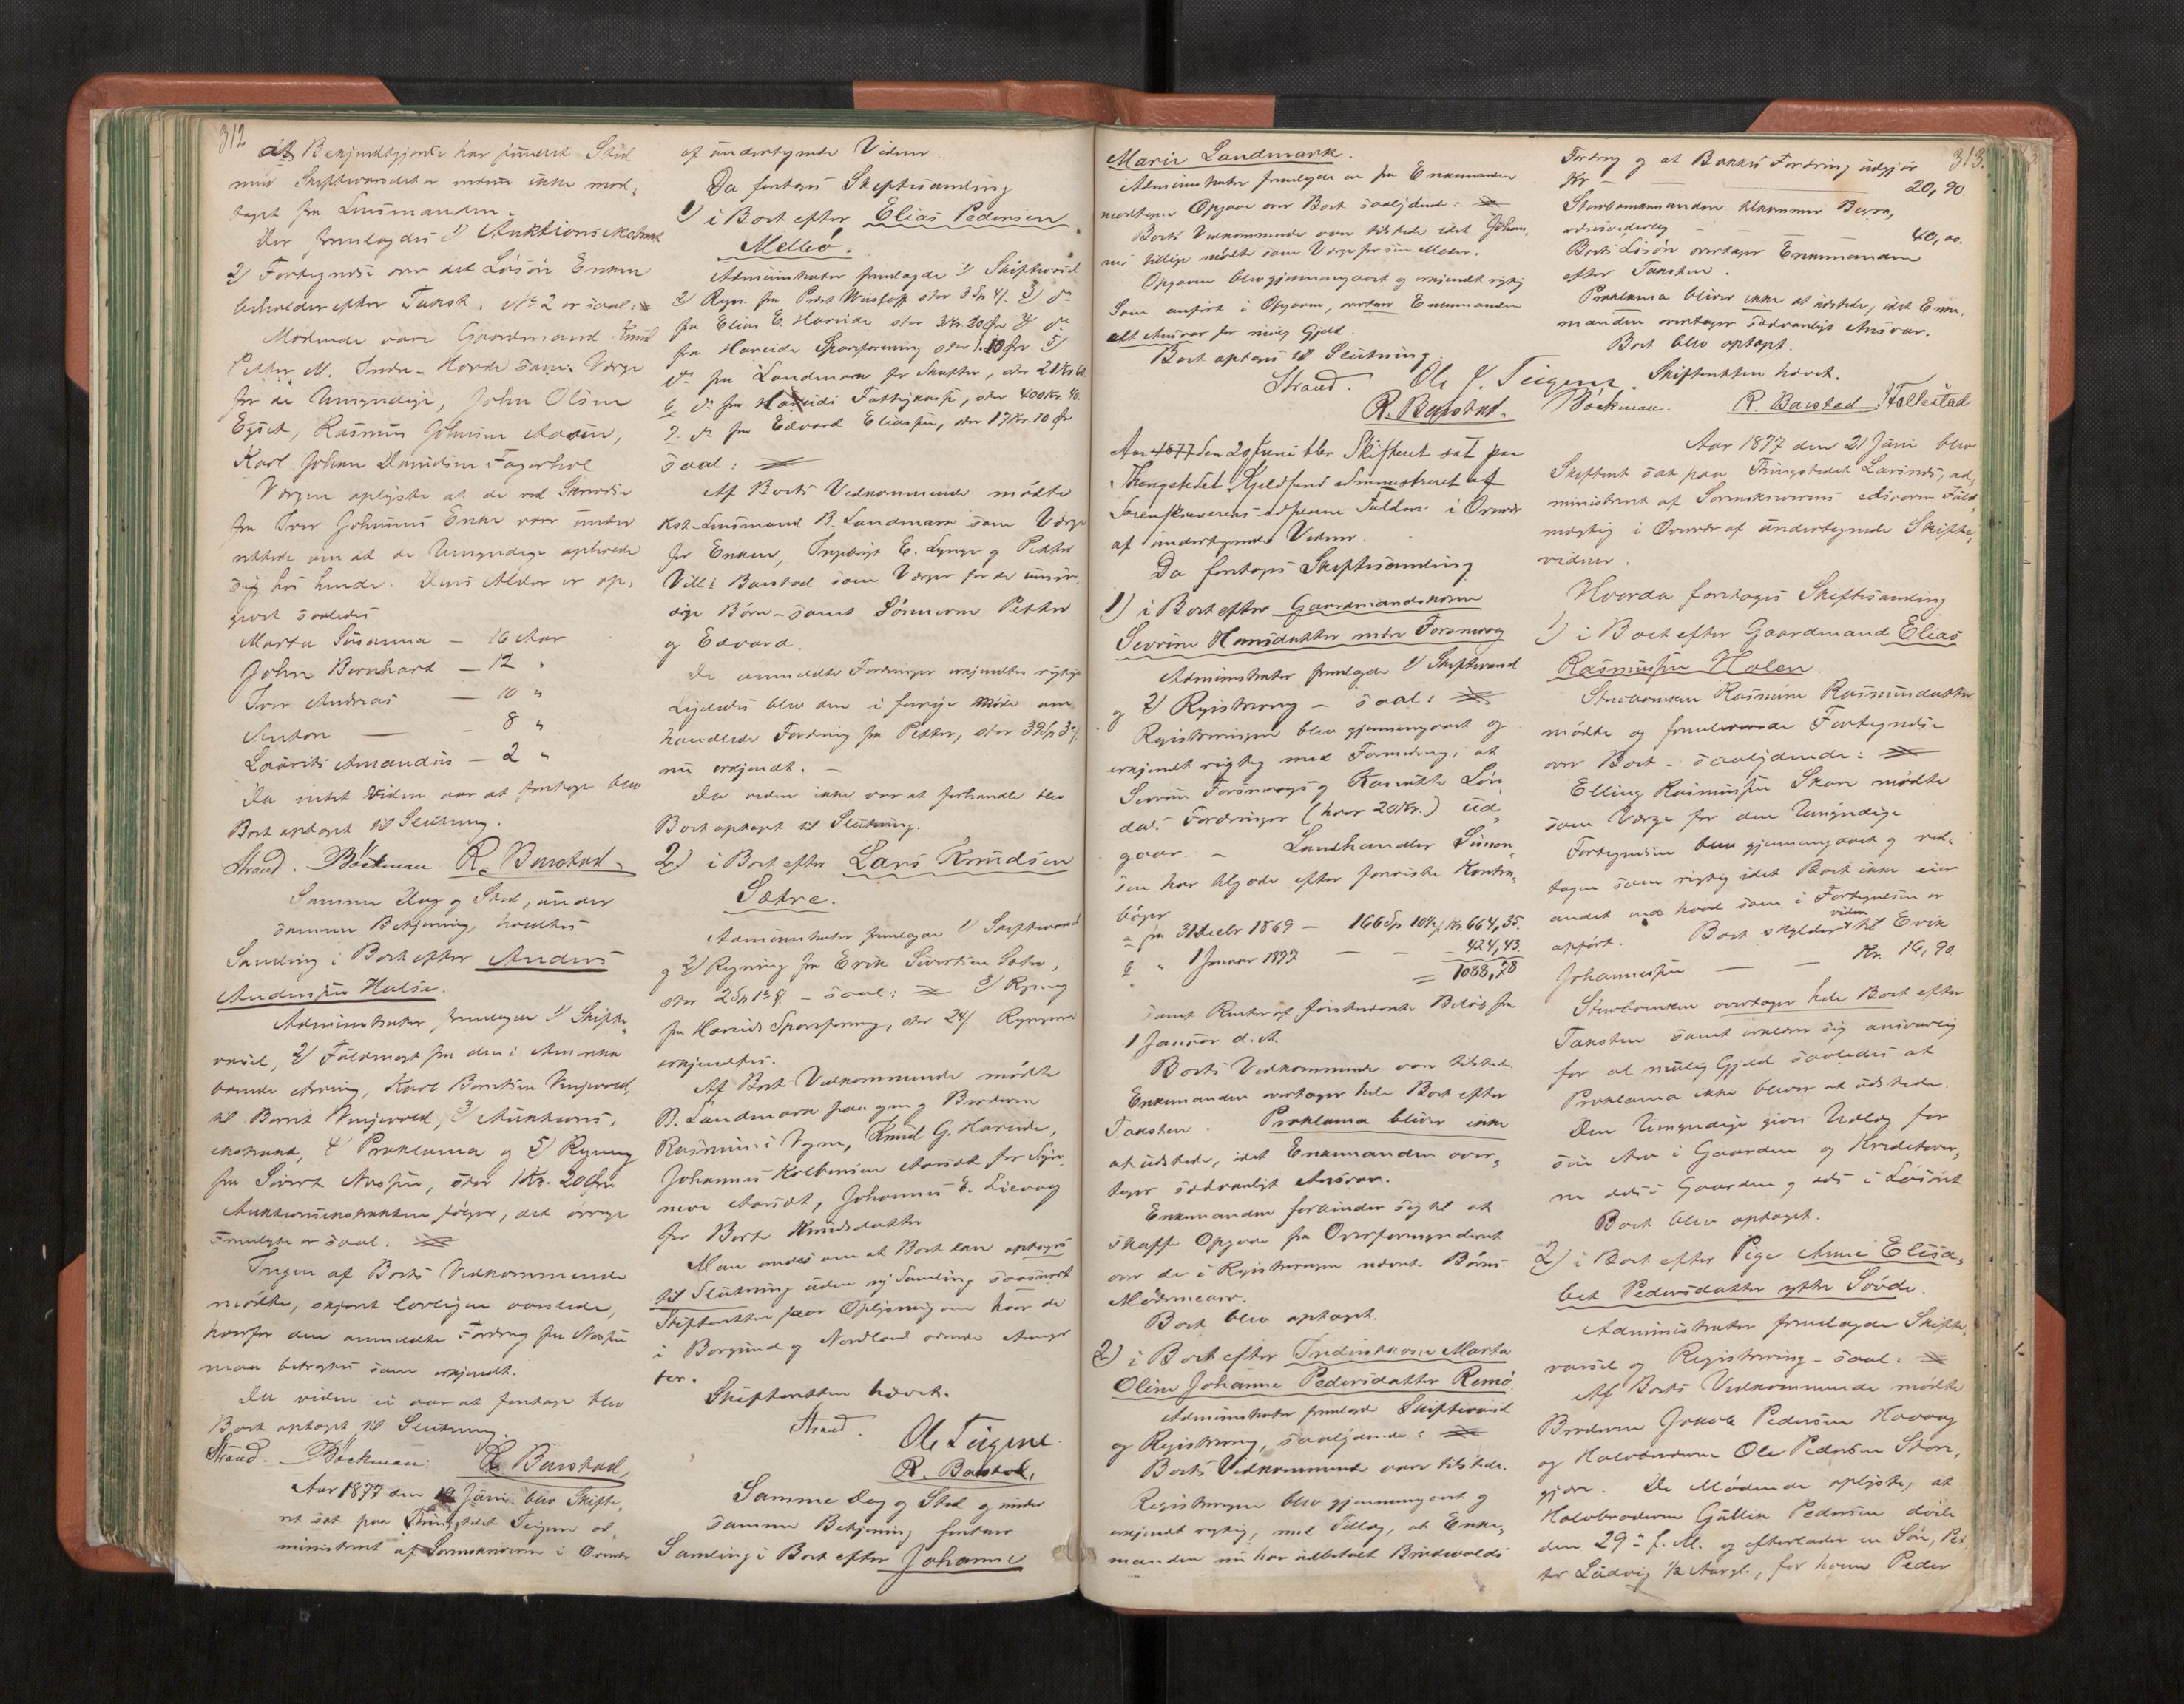 312
at Bekjendtgjørelse har funnet Sted
mens Skiftevarselet endnu ikke mod-
taget fra Lensmanden.
Der fremlagdes 1/ Auktionsextrakt
2/ Fortegnelse over det Løsøre Enken
beholder efter Taxt. No 2 er saal:
Mødende vare Gaardmand Knud
Petter M. Indre-Hovde som Værge
for de Umyndige, John Olsen
Egset, Rasmus Johnsen Aasen,
Karl Johan Danielsen Fagerhol
Værgen oplyste at de ved Skrivelse
fra Iver Johnsens Enke var under
rettede om at de Umyndige opholde
sig hos hende. Deres Alder er op-
givet saaledes
Marta Susanna – 16 Aar
John Bernhard – 12 "
Iver Andreas – 10 "
Anton – 8 "
Lauritz Amandus – 2 "
Da intet viden var at foretage blev
Boet optaget til Slutning.
Strand. Bøckman R. Barstad
Samme Dag og Sted, under
samme Betjening holdtes
Samling i Boet efter Anders
Andersen Halse.
Administrator fremlagde 1/ Skifte-
varsel, 2/ Fuldmagt fra den i Amerika
boende Arving, Karl Berntsen
til Bernt 3/ Auktions-
extrakt, 4/ Proklama og 5/ Regning
fra Sivert Aasen, stor 1 Kr. 20 Øre
Auktionsextrakten følger, det øvrige
Fremlagte er saal:
Ingen af Boets Vedkommende
mødte, skjønt lovligen varslede,
hvorfor den anmeldte Fordring fra Aasen
maa betragtes som erkjendt.
Da viden ei var at foretage blev
Boet optaget til Slutning.
Strand. Bøckman. R. Barstad
Aar 1877 den 19 Juni blev Skifte-
ret sat paa Thingstedet Teigene ad-
ministreret af Sorenskriveren i Overvær
af undertegnede Vidner
Da foretoges Skiftesamling
1) i Boet efter Elias Pedersen
Melbø.
Administrator fremlagde 1/ Skiftevarsel
2/ Regn. fra Prost stor 3 Sp 4/. 3/ do
fra Elias E. Hareide stor 3 Kr. 20 Øre 4/ do
fra Hareids Sparforening stor 5/
do fra Landmark for Skatter, stor
6. do fra Hareids Fattigkasse, stor 400 Kr.
7. do fra Edvard Eliassen, stor 17 Kr. 10 Ør
saal:
Af Boets Vedkommende mødte
Kst. Lensmand B. Landmark som Værge
for Enken, Ingebrigt E. Lynge og Petter
Barstad som Værger for de umyn-
dige Børn – samt Sønnerne Petter
og Edvard.
De anmeldte Fordringer erkjendtes rigtige
Ligeledes blev den i forrige Møde om-
handlede Fordring fra Petter, stor
nu erkjendt. –
Da viden ikke var at forhandle blev
Boet optaget til Slutning.
2) i Boet efter Lars Knudsen
Sætre.
Administrator fremlagde 1/ Skiftevarsel
og 2/ Regning fra Erik Sivertsen Sætre,
stor – saal: 3/ Regning
fra Hareids Sparforening, stor 24/. Regningerne
erkjendtes.
Af Boets Vedkommende mødte
B. Landmark paa egne og Broderen
Rasmus's Vegne, Knud G. Hareide,
Johannes Kolbensen Aarsæt for Sigv.
Aarsæt, Johannes E. Lievog
for Berte Knudsdatter
Man enedes om at Boet kan optages
til Slutning uden ny Samling saasnart
Skifteretten faar Oplysning om hvor de
i Borgund og Nordland værende Arvinger
bor.
Skifteretten hævet.
Strand. Ole Teigene.
R. Barstad.
Samme Dag og Sted og under
samme Betjening foretoges
Samling i Boet efter Johanne
Marie Landmark.
Administrator fremlagde en fra Enkemanden
modtagen Opgave over Boet saalydende:
Boets Vedkommende vare tilstede idet Johan-
nes tillige mødte som Værge for sin Moder.
Opgaven blev gjennemgaaet og erkjendt rigtig
Som anført i Opgaven, overtar Enkemanden
alt Ansvar for mulig Gjeld.
Boet optages til Slutning.
Strand. Ole J. Teigene
R. Barstad.
Aar 1877 den 20 Juni blev Skifteret sat paa
Thingstedet Kjeldsund administreret af
Sorenskriverens edsvorne Fuldm. i Overvær
af undertegnede Vidner.
Da foretoges Skiftesamling
1) i Boet efter Gaardmandskone
Severine Hansdatter nedre Forsnevog
Administrator fremlagde 1/ Skiftevarsel
og 2/ Registrering – saal:
Registreringen blev gjennemgaaet og
erkjendt rigtig med Formening, at
Severine Forsnevogs og Løn-
dals Fordringer (hver 20 Kr.) ud-
gaar. – Landhandler Simon-
sen har tilgode efter foreviste Kontra-
bøger
a. fra 31 Decbr 1869 – 166 Sp 10 Kr 664,35.
b. " 1 Januar 1877 – – 424,43.
= 1088,78
samt Renter af førstnævnte Beløb fra
1 Januar d. A.
Boets Vedkommende var tilstede
Enkemanden overtager hele Boet efter
Taxten. Proklama bliver ikke
at udstede, idet Enkemanden over-
tager sædvanligt Ansvar.
Enkemanden forbinder sig til at
skaffe Opgave fra Overformynderiet
over de i Registreringen nævnte Børns
Mødrenearv.
Boet blev optaget.
2) i Boet efter Inderstkone Marta
Oline Johanne Pedersdatter Remø
Administrator fremlagde Skiftevarsel
og Registrering, saalydende:
Boets Vedkommende vare tilstede.
Registreringen blev gjennemgaaet og
erkjendt rigtig, med Tillæg, at Enke-
manden nu har udbetalt Brudevolds
313.
Fordring og at Bankens Fordring udgjør
Kr – 20,90.
Sterboenkemanden tilkommer Begra-
velsesudlæg – 40,00.
Boets Løsøre overtager Enkemanden
efter Taxten.
Proklama bliver ikke at udstede, idet Enke-
manden overtager sædvanligt Ansvar.
Boet blev optaget.
Skifteretten hævet.
Bøckman. R. Barstad. Tallestad
Aar 1877 den 21 Juni blev
Skifteret sat paa Thingstedet Larsnes, ad-
ministreret af Sorenskriverens edsvorne Fuld-
mægtig i Overvær af undertegnede Skifte-
vidner.
Hvorda foretoges Skiftesamling
1) i Boet efter Gaardmand Elias
Rasmussen Holen
Sterboenken Rasmine Rasmusdatter
mødte og fremleverede Fortegnelse
over Boet – saalydende:
Elling Rasmussen Skare mødte
som Værge for den Umyndige
Fortegnelsen blev gjennemgaaet og ved-
tagen som rigtig idet Boet ikke eier
andet end hvad som i Fortegnelsen er
opført. Boet skylder viden til Erik
Johannessen – – Kr. 16,90
Sterboenken overtager hele Boet efter
Taxten samt erklærer sig ansvarlig
for al mulig Gjeld saaledes at
Proklama ikke bliver at udstede.
Den Umyndige gives Udlæg for
sin Arv i Gaarden og Kreditorer-
ne dels i Gaarden og dels i Løsøret
Boet blev optaget.
2) i Boet efter Pige Anne Elisa-
bet Pedersdatter ytre Søvde.
Administrator fremlagde Skifte-
varsel og Registrering – saal:
Af Boets Vedkommende mødte
Broderen Jakob Pedersen Haavog
og Halvbroderen Ole Pedersen Stor-
gjære. De Mødende oplyste, at
Halvbroderen Gullik Pedersen døde
den 29de f. M. og efterlader en Søn, Pet-
ter Ludvig 1/2 Aar gl., for hvem Peder